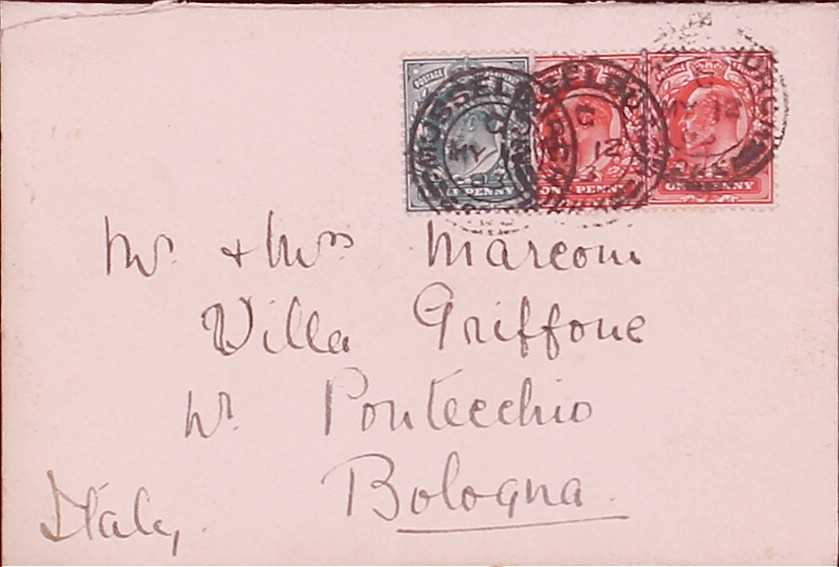 POSTAGE
MUSSELBURGH
C
MY 12
03
ONE PENNY
ONE PENNY
Mr. + Mrs Marconi
Villa Griffone
Nr. Pontecchio
Bologna.
Italy.